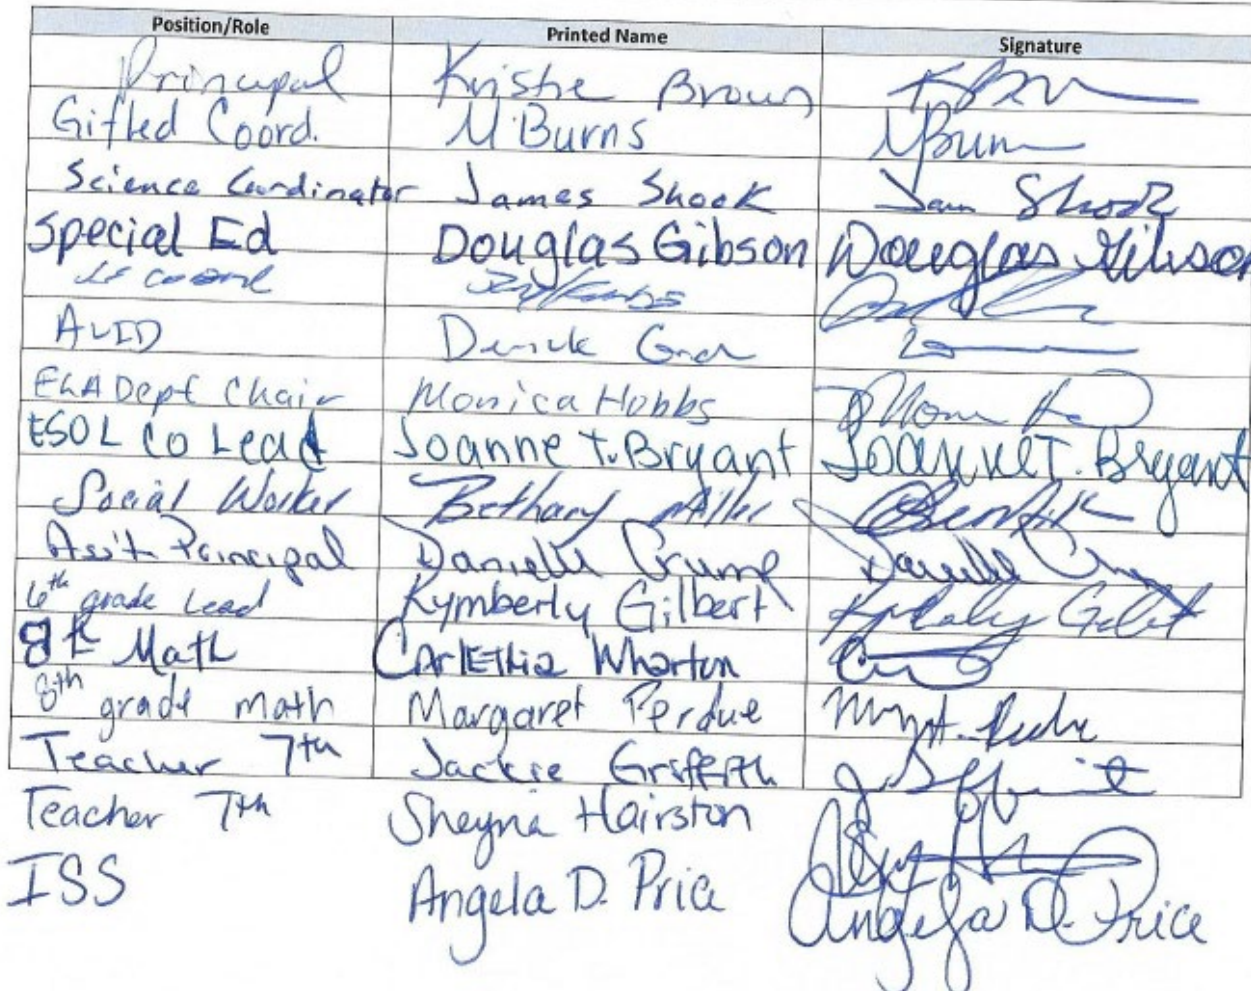 Position/Role Printed Name Signature
Principal Kristie Brown
Gifted Coord. M Burns
Science Cordinator James Shook James Shook
Special Ed Douglas Gibson Douglas Gibson
AVID
ELA Dept Chair Monica Hobbs
ESOL Co Lead Joanne T. Bryant Joanne T. Bryant
Social Worker Bethany Miller
Ass't Principal Danielle Crump Danielle
6th grade Lead Kymberly Gilbert
8th Math Carlethia Wharton
8th grade math Margaret Perdue
Teacher 7th Jackie Griffith
Teacher 7th Sheyna Hairston
ISS Angela D. Price Angela D. Price